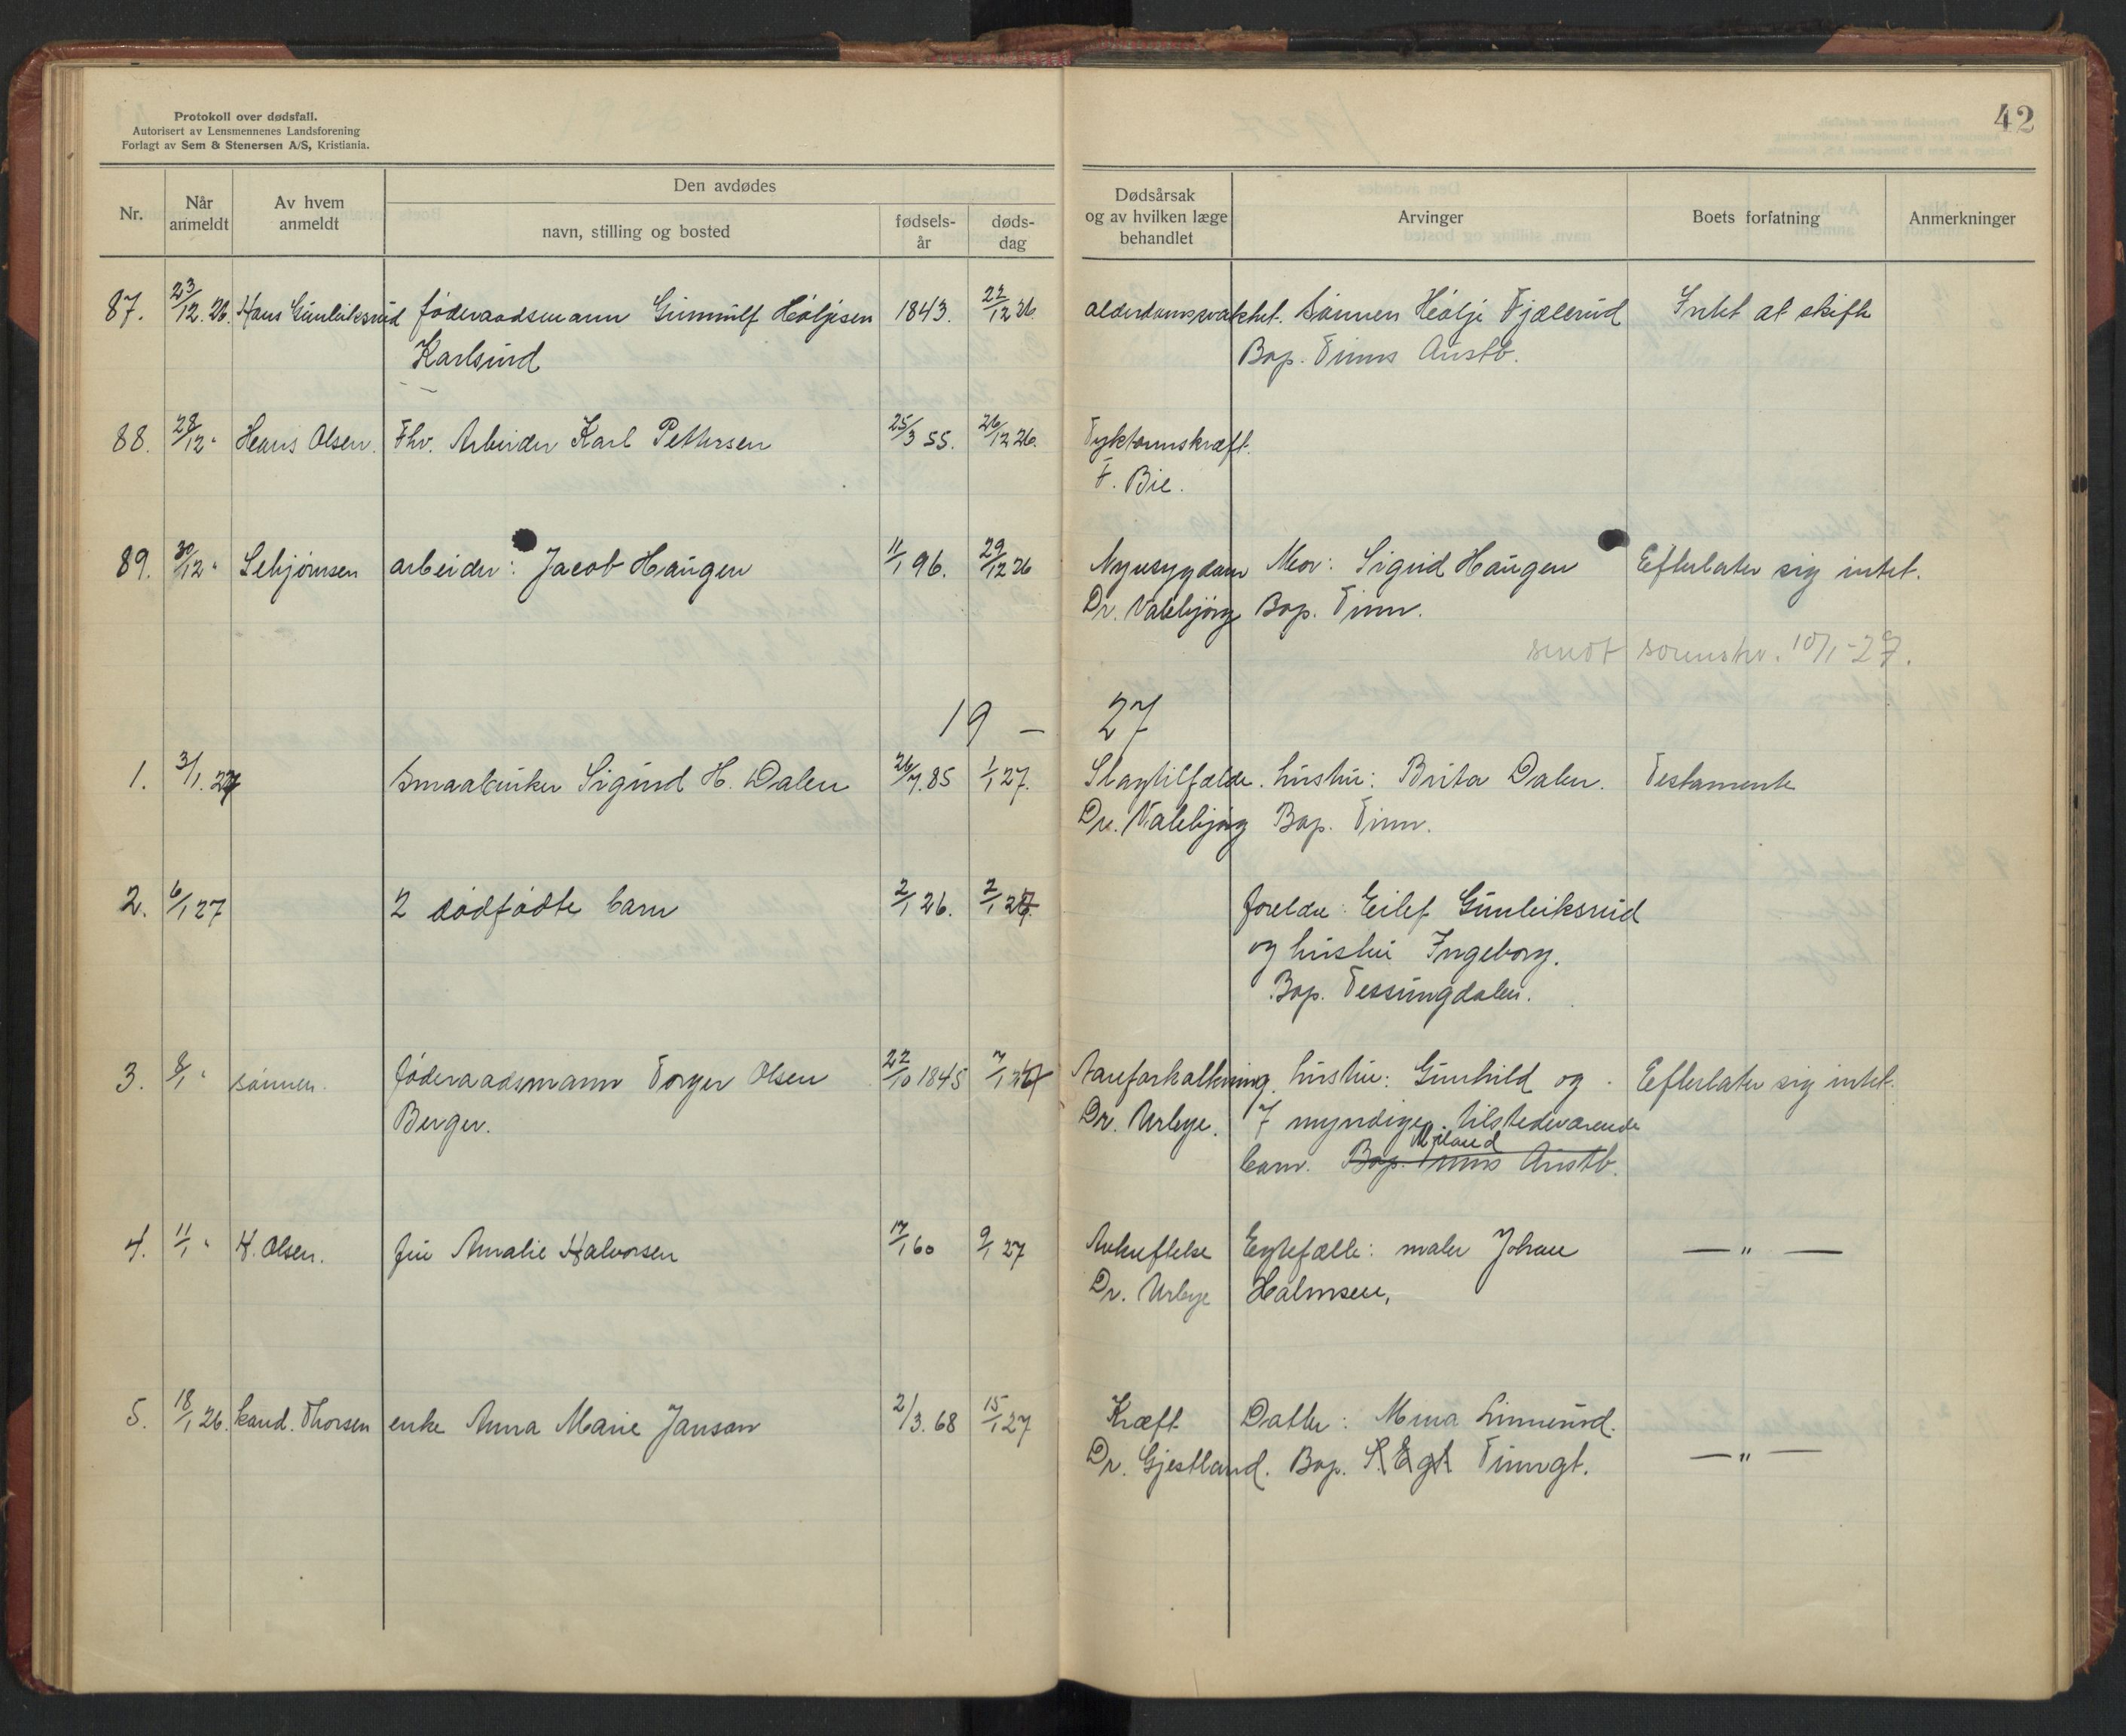 42
Protokoll over dødsfall.
Autorisert av Lensmennenes Landsforening
Forlagt av Sem & Stenersen A/S, Kristiania.
Nr. Når anmeldt Av hvem anmeldt Den avdødes navn, stilling og bosted fødsels-år døds-dag Dødsårsak og av hvilken læge behandlet Arvinger Boets forfatning Anmerkninger
87. 23/12.26. Hans Gunleiksrud føderaadsmann Gunnulf Høljesen 1843. 22/12 26. alderdomssvakhet. Sønnen Hølje Fjællrud Intet at skifte
Karlsrud Bop. Tinns Austb.
88. 28/12 " Hans Olsen. Fhv. Arbeider Karl Pettersen 25/3 55. 26/12 26. Tyktarmskræft.
F. Bie.
89. 30/12 " arbeider: Jacob Haugen 11/1 96. 29/12 26 Nyresygdom Mor: Sigrid Haugen Efterlater sig intet.
Dr. Valebjørg Bop. Tinn.
sendt sorenskr. 10/1-27.
19 – 27
1. 3/1.27 Smaabruker Sigurd H. Dalen 26/7.85 1/1 27. Slagtilfælde. hustru: Brita Dalen. Testamente
Dr. Valebjørg Bop. Tinn.
2. 6/1 27 2 dødfødte barn 2/1 26. 2/1 27. foreldre: Eilef Gunleiksrud
og hustru Ingeborg.
Bop. Tessungdalen.
3. 8/1 " sønnen. føderaadsmann Torger Olsen 22/10 1845 7/1 27 Aareforkalkning. hustru: Gunhild og Efterlater sig intet.
Berger. Dr. Urbye. 7 myndige, tilstedeværende
Miland
barn. Bop. Tinns Austb.
4. 11/1 " H. Olsen. fru Amalie Halvorsen 17/1 60 9/1 27 Avkreftelse Egtefælle: maler Johan — " —
Dr. Urbye Halvorsen,
5. 18/1 26. kand. Thorsen enke Anna Marie Janson 2/3. 68 15/1 27 Kræft Datter:
Dr. Gjestland. Bop. Tinngt. — " —